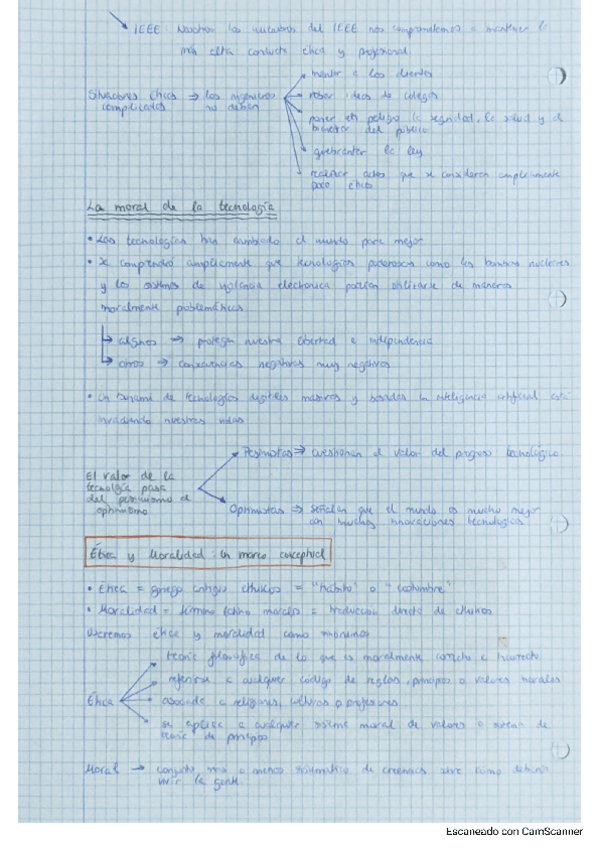 IEEE Nosotros los miembros del IEEE nos comprometemos a mantener la
más alta conducta ética y profesional
mentir a los clientes
Situaciones éticas → los ingenieros
complicadas no deben
robar ideas de colegas
poner en peligro la seguridad, la salud y el
bienestar del público
quebrantar la ley
realizar actos que se consideran ampliamente
poco éticos
La moral de la tecnología
• Las tecnologías han cambiado el mundo para mejor
• Se comprendió ampliamente que tecnologías poderosas como las bombas nucleares
y los sistemas de vigilancia electrónica podían utilizarse de maneras
moralmente problemáticas
algunos → protegen nuestra libertad e independencia
otros → consecuencias negativas muy negativas
• Un tsunami de tecnologías digitales masivas y basadas en inteligencia artificial está
invadiendo nuestras vidas
Pesimistas → cuestionan el valor del progreso tecnológico
El valor de la
tecnología pasa
del pesimismo al
optimismo
Optimistas → señalan que el mundo es mucho mejor
con muchas innovaciones tecnológicas
Ética y Moralidad: un marco conceptual
• Ética = griego antiguo = "hábito" o "costumbre"
• Moralidad = término latino morales = traducción directa de
Usaremos ética y moralidad como sinónimos
teoría filosófica de lo que es moralmente correcto e incorrecto
referirse a cualquier código de reglas, principios o valores morales
Ética
asociado a religiones, culturas o profesiones
se aplica a cualquier sistema moral de valores o
teoría de principios
Moral → conjunto más o menos sistemático de creencias sobre cómo debería
vivir la gente
Escaneado con CamScanner